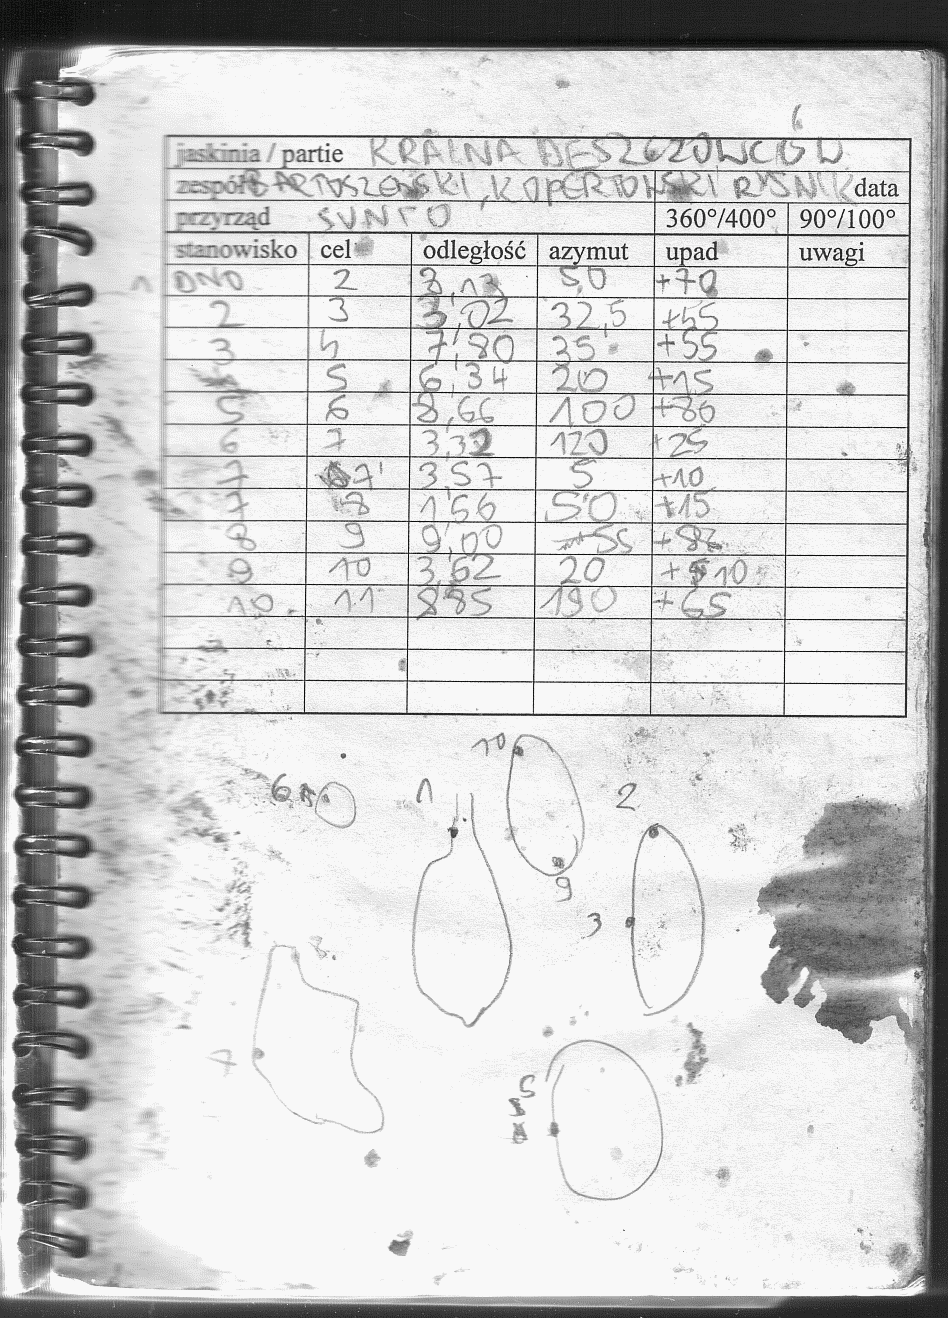 6
jaskinia / partie KRAINA DESZCZOWCÓW
zespół BARTOSZEWSKI, KOPERTOWSKI RYSNIK data
przyrząd SUNTO 360°/400° 90°/100°
stanowisko cel odległość azymut upad uwagi
1 DNO 2 3,13 50 +70
2 3 3,02 32,5 +55
3 4 7,80 35 +55
5 6,34 20 +15
5 6 8,66 100 +80
6 7 3,32 120 +25
7 7' 3,57 5 +10
7 8 1,56 50 +15
8 9 9,00 55
9 10 3,62 20 +10
10 11 8,85 190 +65
10
6 1 2
9
3
8
7
5